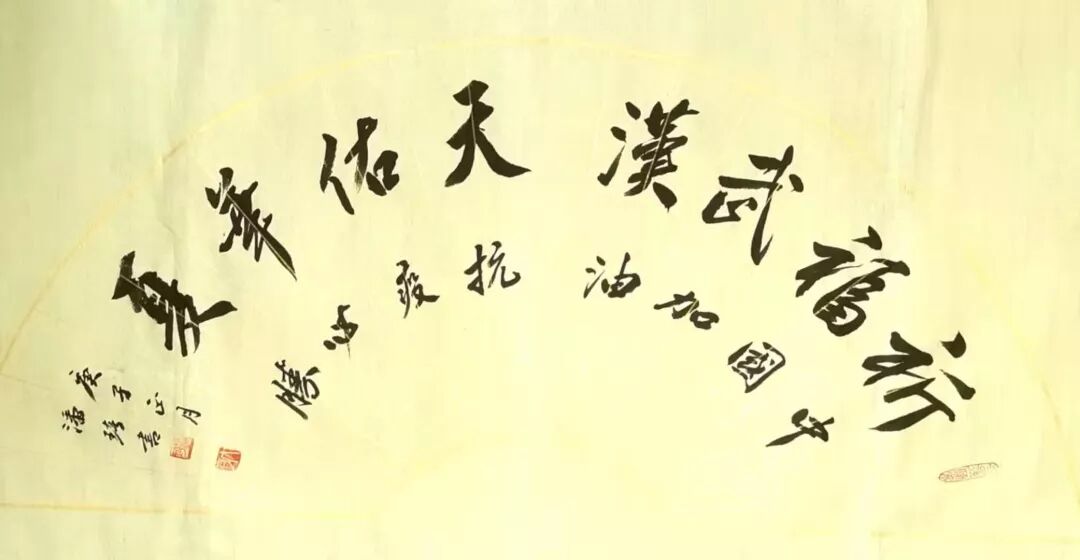 祈福武漢 天佑華夏
中國加油 抗疫必勝
庚子正月
潘書